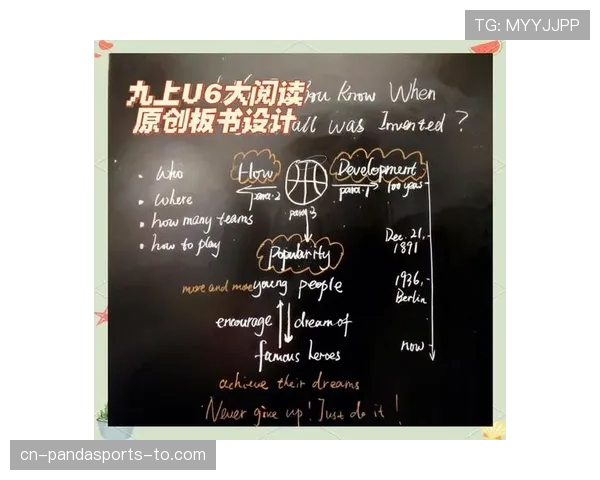 TG: MYYJJPP
九上U6大阅读
原创板书设计
You Know When
all was Invented?
• Who
• Where
• how many teams
• how to play
How
para.2
para.3
Development
para.1
100 years
Dec. 21, 1891
1936, Berlin
now
Popularity
more and more young people
encourage
dream of
famous heroes
achieve their dreams
Never give up! Just do it!
cn-pandasports-to.com